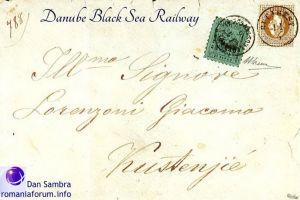 788
Danube Black Sea Railway
Illmo Signore
Lorenzoni Giacomo
Kustenjié
Dan Sambra
romaniaforum.info